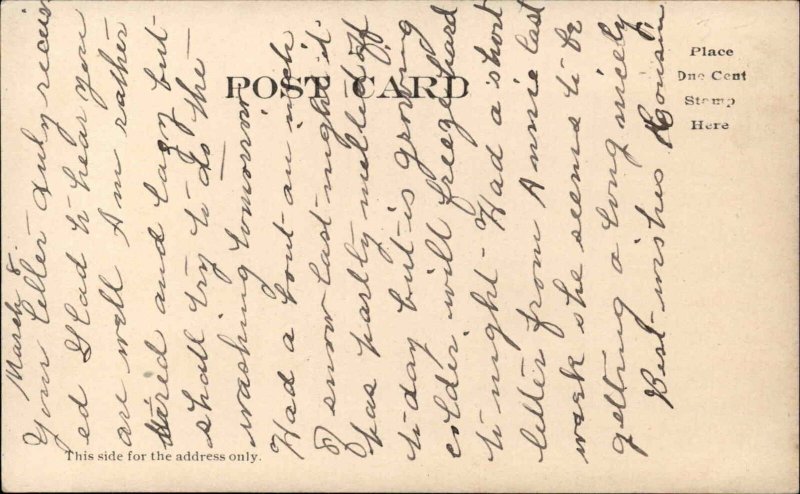 POST CARD
Place
One Cent
Stamp
Here
This side for the address only.
March 8
Your letter duly receiv
ed Glad to hear you
are well Am rather
tired and lazy but
shall try to do the
washing tomorrow
Had about an inch
of snow last night it
has partly melted off
to-day but is growing
colder, will freeze hard
to night - Had a short
letter from Annie last
week she seems to be
getting along nicely
Best wishes Cousin